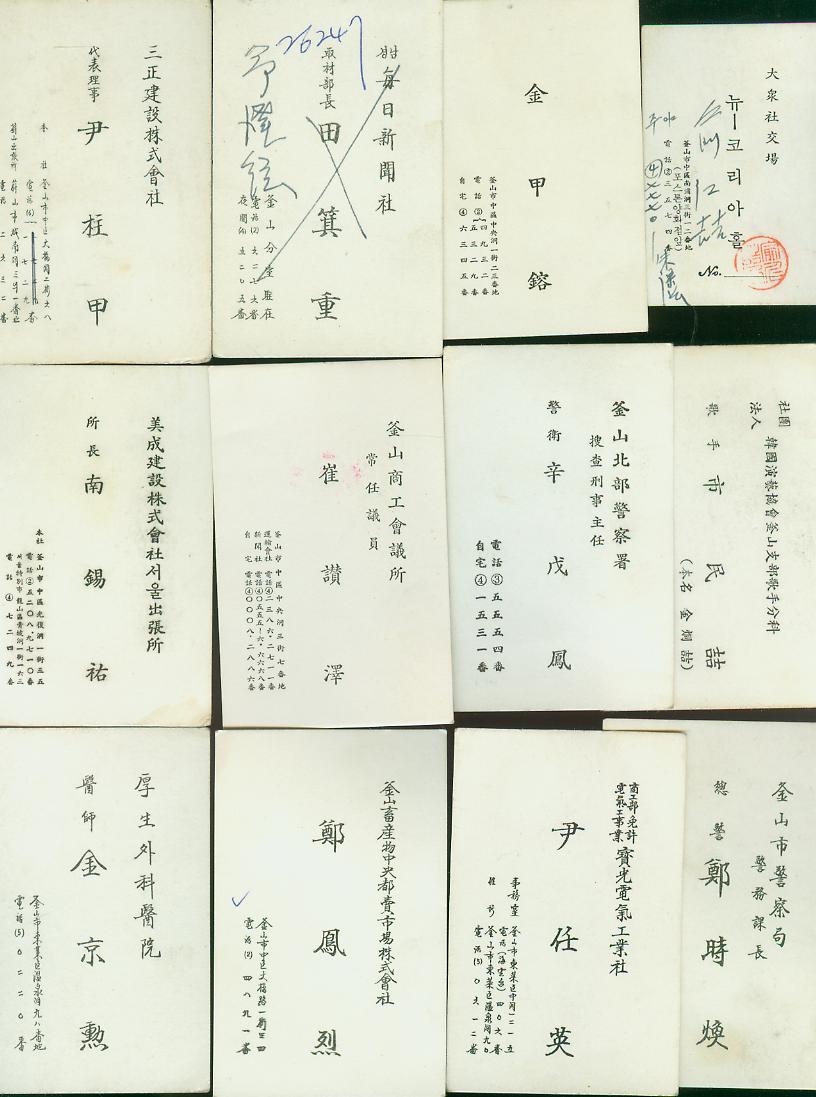 三正建設株式會社
代表理事
尹柱甲
경남
每日新聞社
取材部長
田箕重
26247
釜山分室駐在
金甲鎔
釜山市中區中央洞一街二三番地
電話②四九三二番
五三二九番
自宅④六三四五番
大衆社交場
뉴ー코리아홀
釜山市中區南浦洞三街一二番地
(포스톤양화점앞)
電話②三五七四番
No.
美成建設株式會社서울出張所
所長
南錫祐
本社 釜山市中區光復洞一街三五
電話②五二〇八.九七一〇番
서울特別市龍山區靑坡洞一街一六三
電話④七二四九番
釜山商工會議所
常任議員
崔讚澤
釜山市中區中央洞三街七番地
運輸會社 電話④二三八六.二七一一番
新聞社 電話④〇五五五!六.六六六八番
自宅 電話④〇〇〇八.二八八六番
釜山北部警察署
搜査刑事主任
警衛
辛戊鳳
電話③五五五四番
自宅④一五三一番
社團
法人
韓國演藝協會釜山支部歌手分科
歌手
市民喆
(本名 金炯喆)
厚生外科醫院
醫師
金京勲
釜山市東萊區溫泉洞九八番地
電話(5)〇二二〇番
釜山畜産物中央都賣市場株式會社
鄭鳳烈
釜山市中区大橋路一街三四
電話(2)四八九一番
商工部免許
電氣工事業
寶光電氣工業社
尹任英
事務室 釜山市東萊区中洞一二一五
電話(海雲台)四〇六番
住所 釜山市東萊区溫泉洞九〇
電話(5)〇六一二番
釜山市警察局
警務課長
總警
鄭時煥